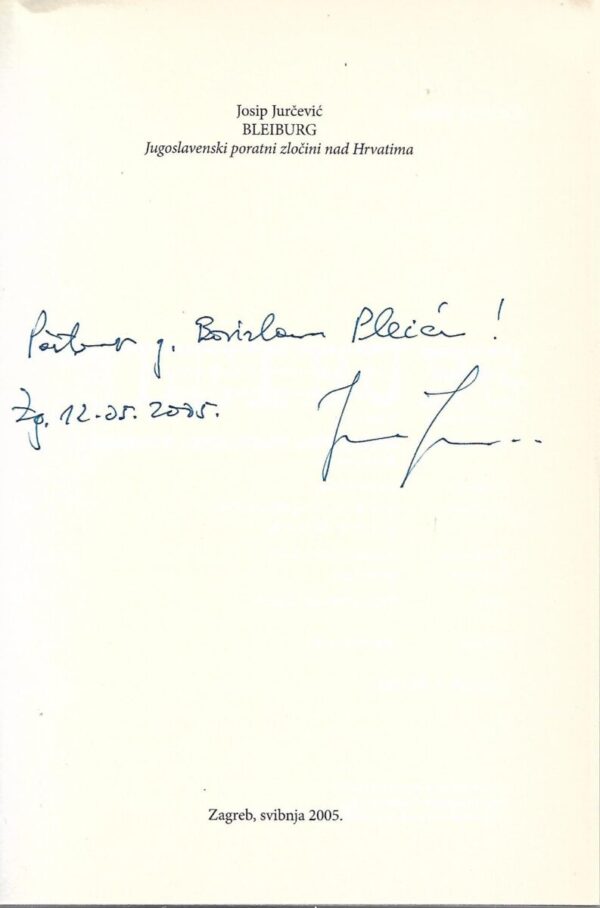 Josip Jurčević
BLEIBURG
Jugoslavenski poratni zločini nad Hrvatima
g. Borislavu Pleiću !
Zg. 12.05.2005.
Zagreb, svibnja 2005.